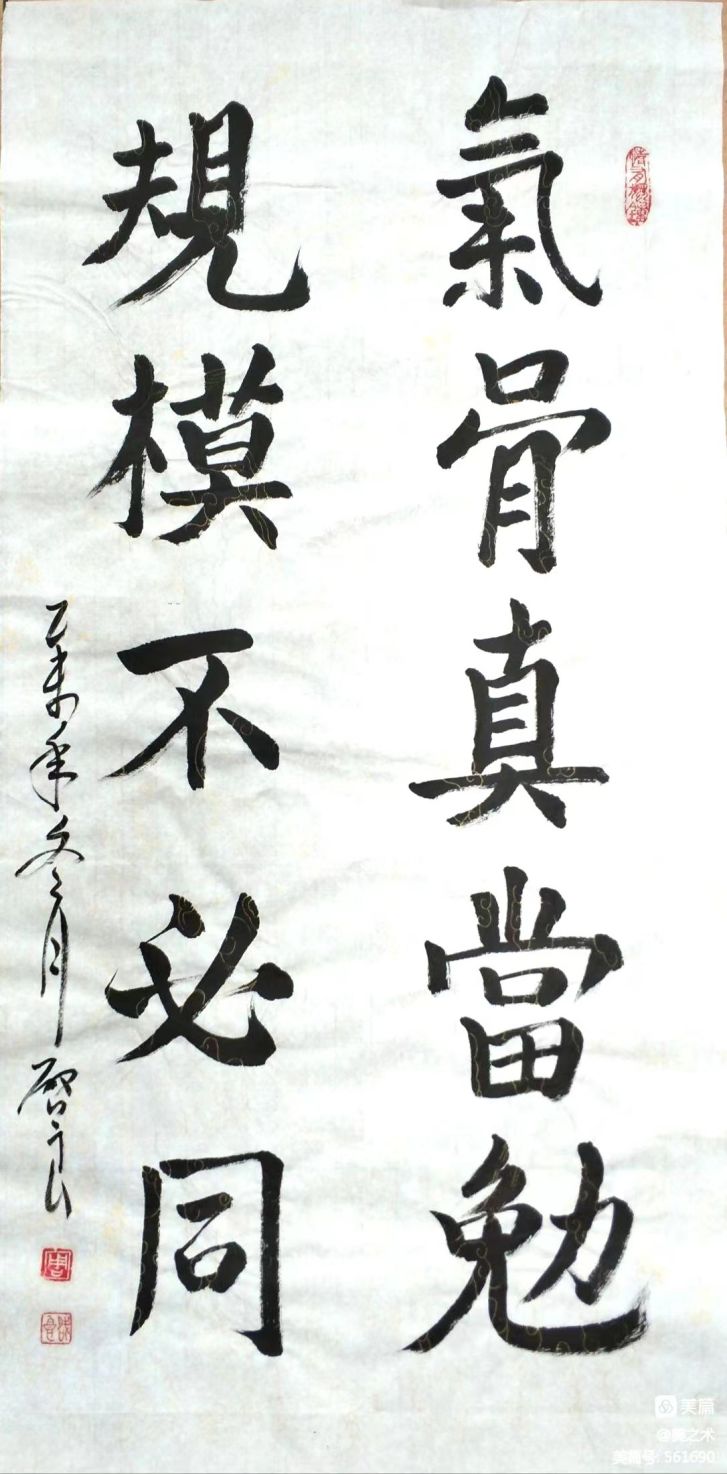 氣骨真當勉
規模不必同
乙未年冬月
美篇
@亮之术
美篇号:561690